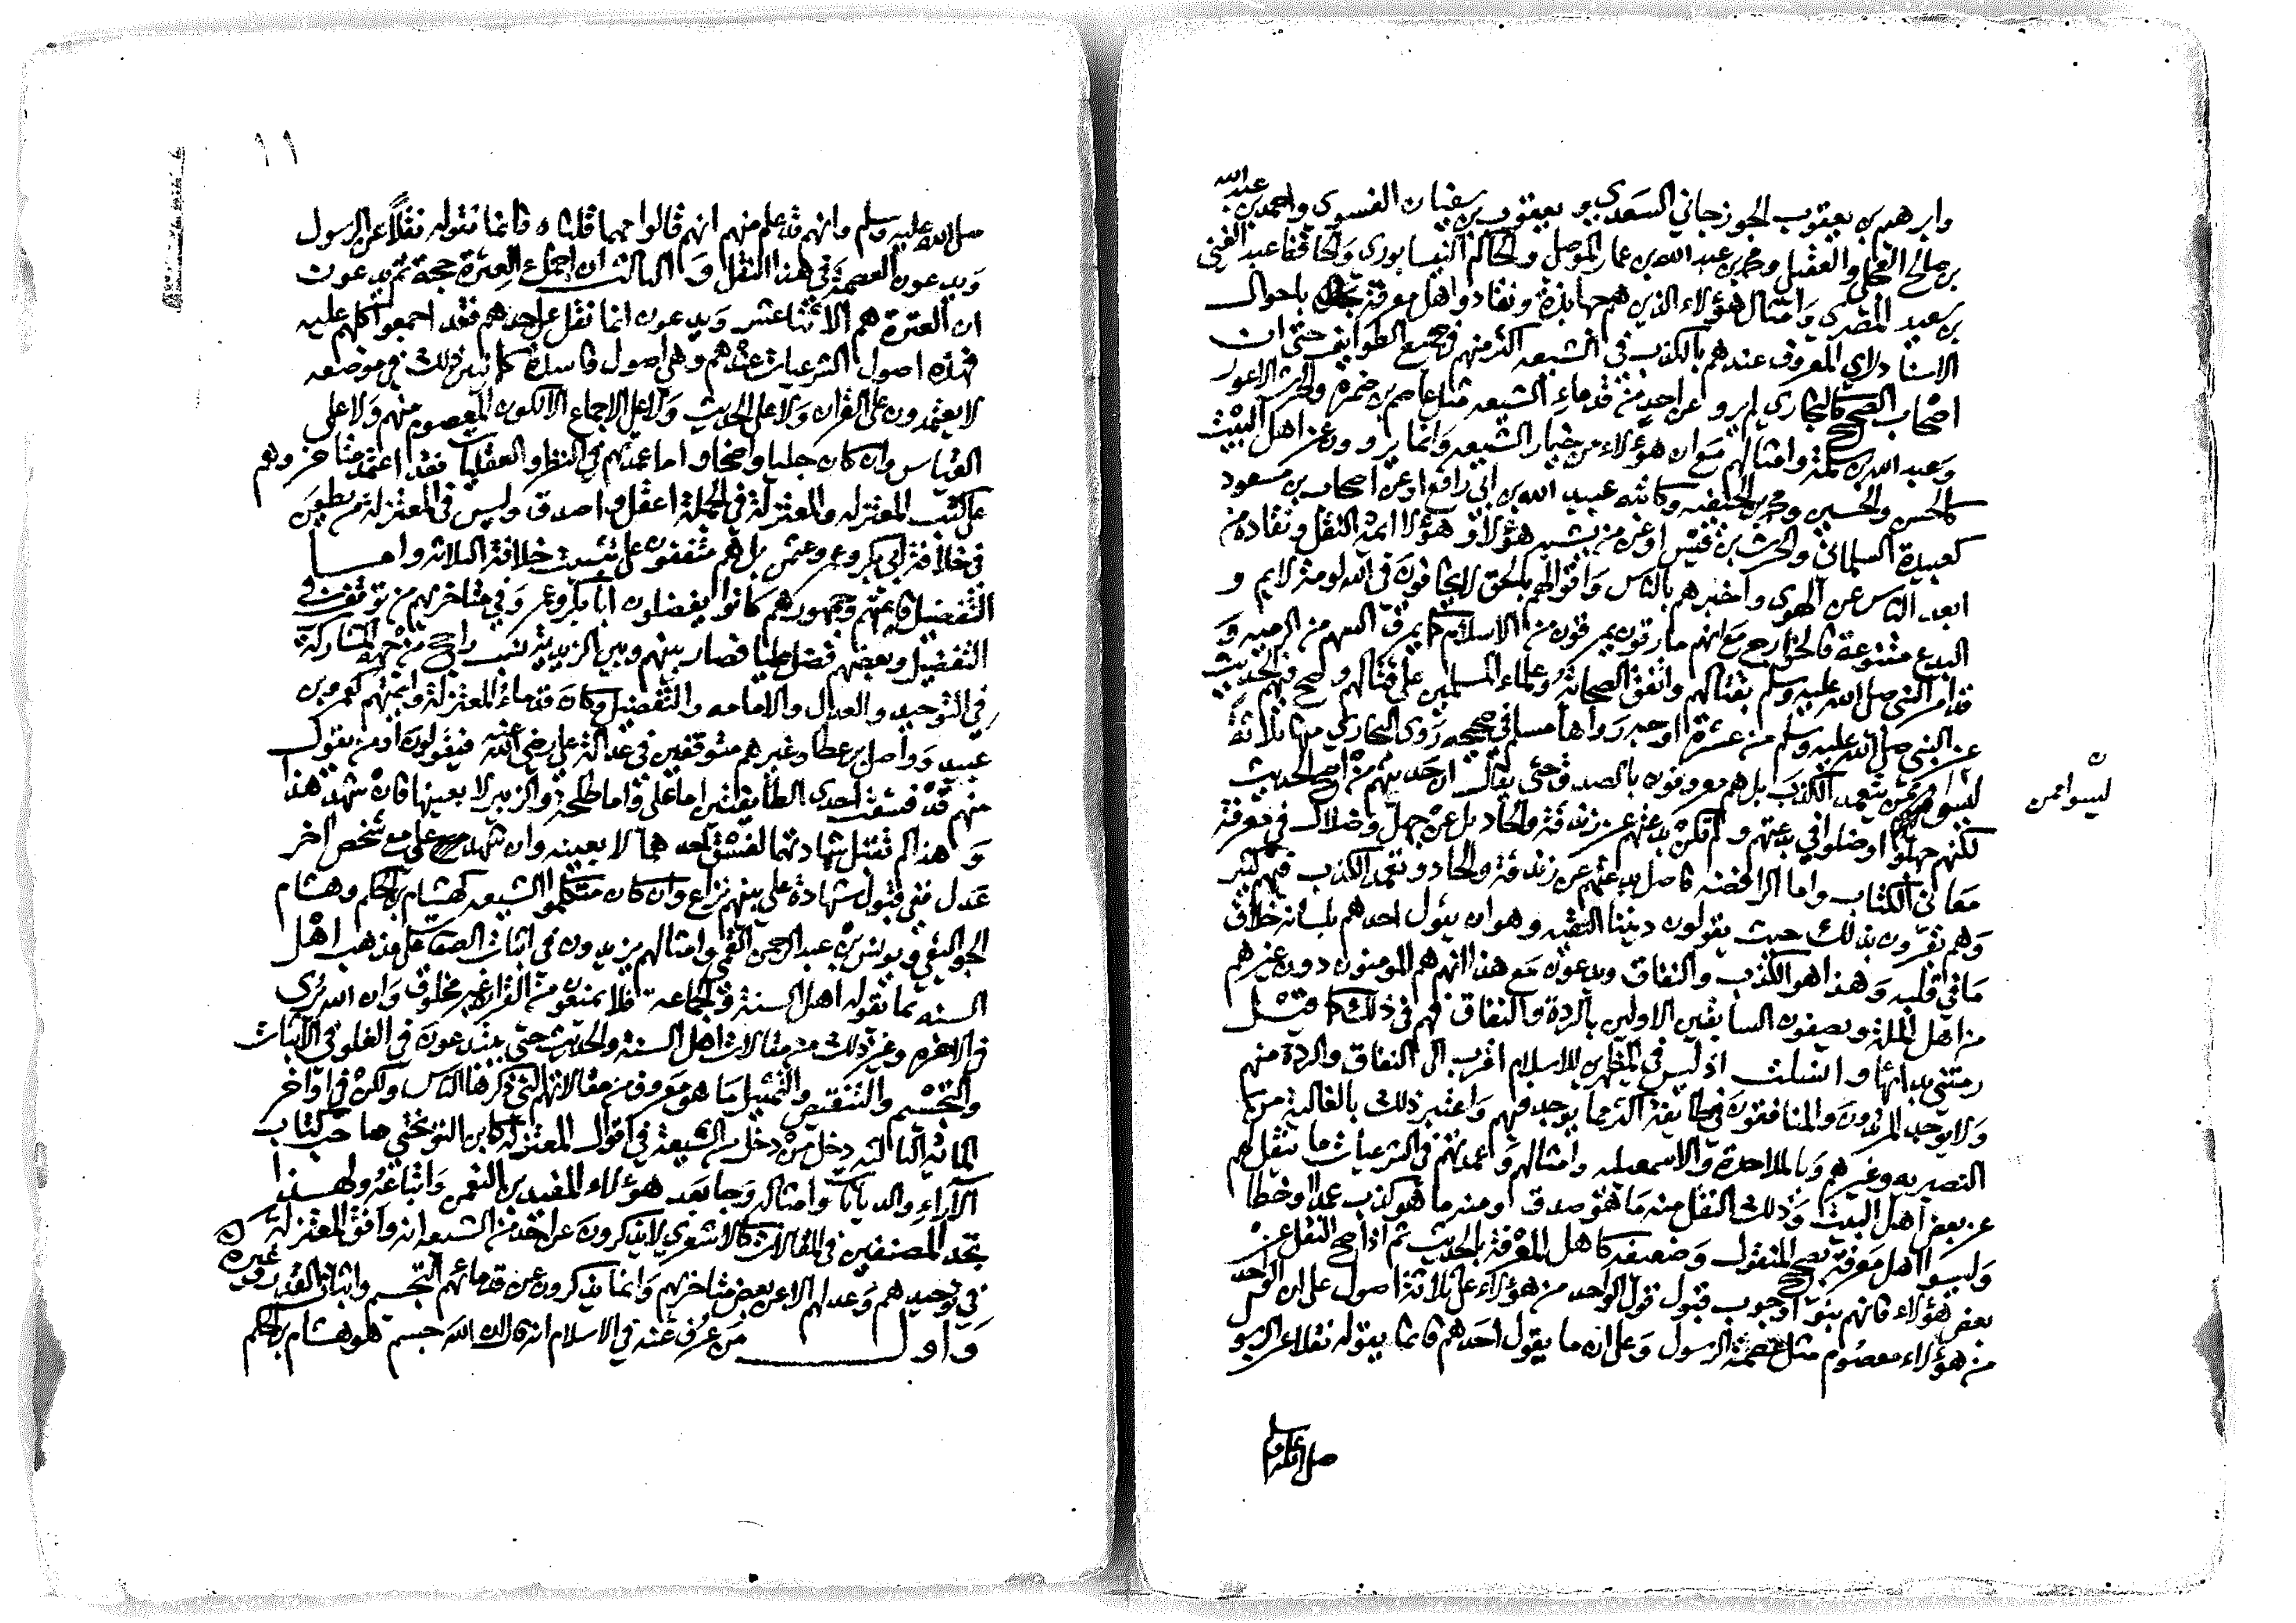 وابرهيم بن يعقوب الجوزجاني السعدي ويعقوب بن سفيان الفسوي واحمد بن عبد الله
بن صالح العجلي والعقيلي ومحمد بن عبد الله بن عمار الموصلي والحاكم النيسابوري والحافظ عبد الغني
بن سعيد المصري وامثال هؤلاء الذين هم جهابذة ونقاد واهل معرفة باحوال
الاسناد لاي المعروف عندهم بالكذب في الشيعه اكثر منهم في جميع الطوايف حتى ان
اصحاب الصحيح كالبخاري لم يرو عن احد من قدماء الشيعه مثل عاصم بن ضمرة والحرث الاعور
وعبد الله بن سلمة وامثالهم مع ان هؤلاء من خيار الشيعه وانما يروون عن اهل البيت
كالحسن والحسين ومحمد بن الحنفيه وكاتبه عبيد الله بن ابي رافع او عن اصحاب بن مسعود
كعبيدة السلماني والحرث بن قيس او عن من يشبه هؤلاء وهؤلا ائمة النقل ونقاده من
ابعد الناس عن الهوى واخبرهم بالناس واقوالهم بالحق لا يخافون في الله لومة لايم و
البدع متنوعة فالخوارج مع انهم مارقون يمرقون من الاسلام كما يمرق السهم من الرميه و
قد امر النبي صلى الله عليه وسلم بقتالهم واتفق الصحابة وعلماء المسلمين على قتالهم وصح فيهم الحديث
عن النبي صلى الله عليه وسلم من عشرة اوجه رواها مسلم في صحيحه روى البخاري منها ثلاثة
ليسوا ممن يتعمد الكذب بل هم معروفون بالصدق حتى يقال ان حديثهم من اصح الحديث
ليسوا ممن
لكنهم جهلوا وضلوا في بدعتهم ولم تكن بدعتهم عن زندقة والحاد بل عن جهل وضلال في معرفة
معاني الكتاب واما الرافضه فاصل بدعتهم عن زندقة والحاد وتعمد الكذب فيهم كثير
وهم يقرون بذلك حيث يقولون ديننا التقيه وهو ان يقول احدهم بلسانه خلاف
ما في قلبه وهذا هو الكذب والنفاق ويدعون مع هذا انهم هم المومنون دون غيرهم
من اهل الملة ويصفون السابقين الاولين بالردة والنفاق فهم في ذلك كما قيل
رمتني بدائها وانسلت اذ ليس في المظهرين للاسلام اقرب الى النفاق والردة منهم
ولا يوجد المرتدون والمنافقون في طايفة اكثر مما يوجد فيهم واعتبر ذلك بالغالية من
النصيريه وغيرهم وبالملاحدة والاسمعيليه وامثالهم وعمدتهم في الشرعيات ما ينقل لهم
عن بعض اهل البيت وذلك النقل منه ما هو صدق ومنه ما هو كذب عمدا وخطا
وليسوا اهل معرفة بصحيح المنقول وضعيفه كاهل المعرفة بالحديث ثم اذا صح النقل عن
بعض هؤلاء فانهم بنوا وجوب قبول قول الواحد من هؤلاء على ثلاثة اصول على ان الواحد
من هؤلاء معصوم مثل عصمة الرسول وعلى ان ما يقول احدهم فانما يقوله نقلا عن الرسول
صلى الله عليه وسلم
١١
صلى الله عليه وسلم وانهم قد علم منهم انهم قالوا مهما قلناه فانما نقوله نقلا عن الرسول
ويدعون العصمة في هذا النقل والثالث ان اجماع العترة حجة ثم يدعون
ان العترة هم الاثنا عشر ويدعون ان ما نقل عن احدهم فقد اجمعوا كلهم عليه
فهذه اصول الشرعيات عندهم وهي اصول فاسدة كما تبين ذلك في موضعه
لا يعتمدون على القران ولا على الحديث ولا على الاجماع الا لكون المعصوم منهم ولا على
القياس وان كان جليا واضحا واما عمدتهم في النظر والعقليات فقد اعتمد متاخروهم
على كتب المعتزله والمعتزلة في الجملة اعقل واصدق وليس في المعتزلة من يطعن
في خلافة ابي بكر وعمر وعثمن بل هم متفقون على تثبيت خلافة الثلاثه واما
التفضيل فائمتهم وجمهورهم كانوا يفضلون ابا بكر وعمر وفي متاخريهم من توقف في
التفضيل وبعضهم فضل عليا فصار بينهم وبين الزيدية نسب راجح من جهة المشاركة
في التوحيد والعدل والامامه والتفضيل وكان قدماء المعتزلة وائمتهم كعمرو بن
عبيد وواصل بن عطا وغيرهم متوقفين في عدالة علي رضي الله عنه فيقولون او من يقول
منهم قد فسقت احدى الطايفتين اما علي واما طلحة والزبير لا بعينها فان شهد هذا
وهذا لم تقبل شهادتهما لفسق احدهما لا بعينه وان شهد علي مع شخص اخر
عدل ففي قبول شهادة علي بينهم نزاع وان كان متكلموا الشيعه كهشام بن الحكم وهشام
الجواليقي ويونس بن عبد الرحمن القمي وامثالهم يزيدون في اثبات الصفات على مذهب اهل
السنه بما يقوله اهل السنة والجماعه فلا يمنعون من القران غير مخلوق وان الله يرى
في الاخره وغير ذلك من مقالات اهل السنة والحديث حتى يبتدعون في الغلو في الاثبات
والتجسيم والتنقيص والتمثيل ما هو معروف من مقالاتهم التي ذكرها الناس ولكن في اواخر
المائة الثالثه دخل من دخل من الشيعة في اقوال المعتزلة كابن النوبختي صاحب كتاب
الآراء والديانات وامثاله وجا بعد هؤلاء المفيد بن النعمن واتباعه ولهذا
تجد المصنفين في المقالات كالاشعري لا يذكرون عن احد من الشيعه انه وافق المعتزلة
في توحيدهم وعدلهم الا عن بعض متاخريهم وانما يذكرون عن قدمائهم التجسيم واثبات القدر وغيره
واول من عرف عنه في الاسلام انه قال ان الله جسم هو هشام بن الحكم